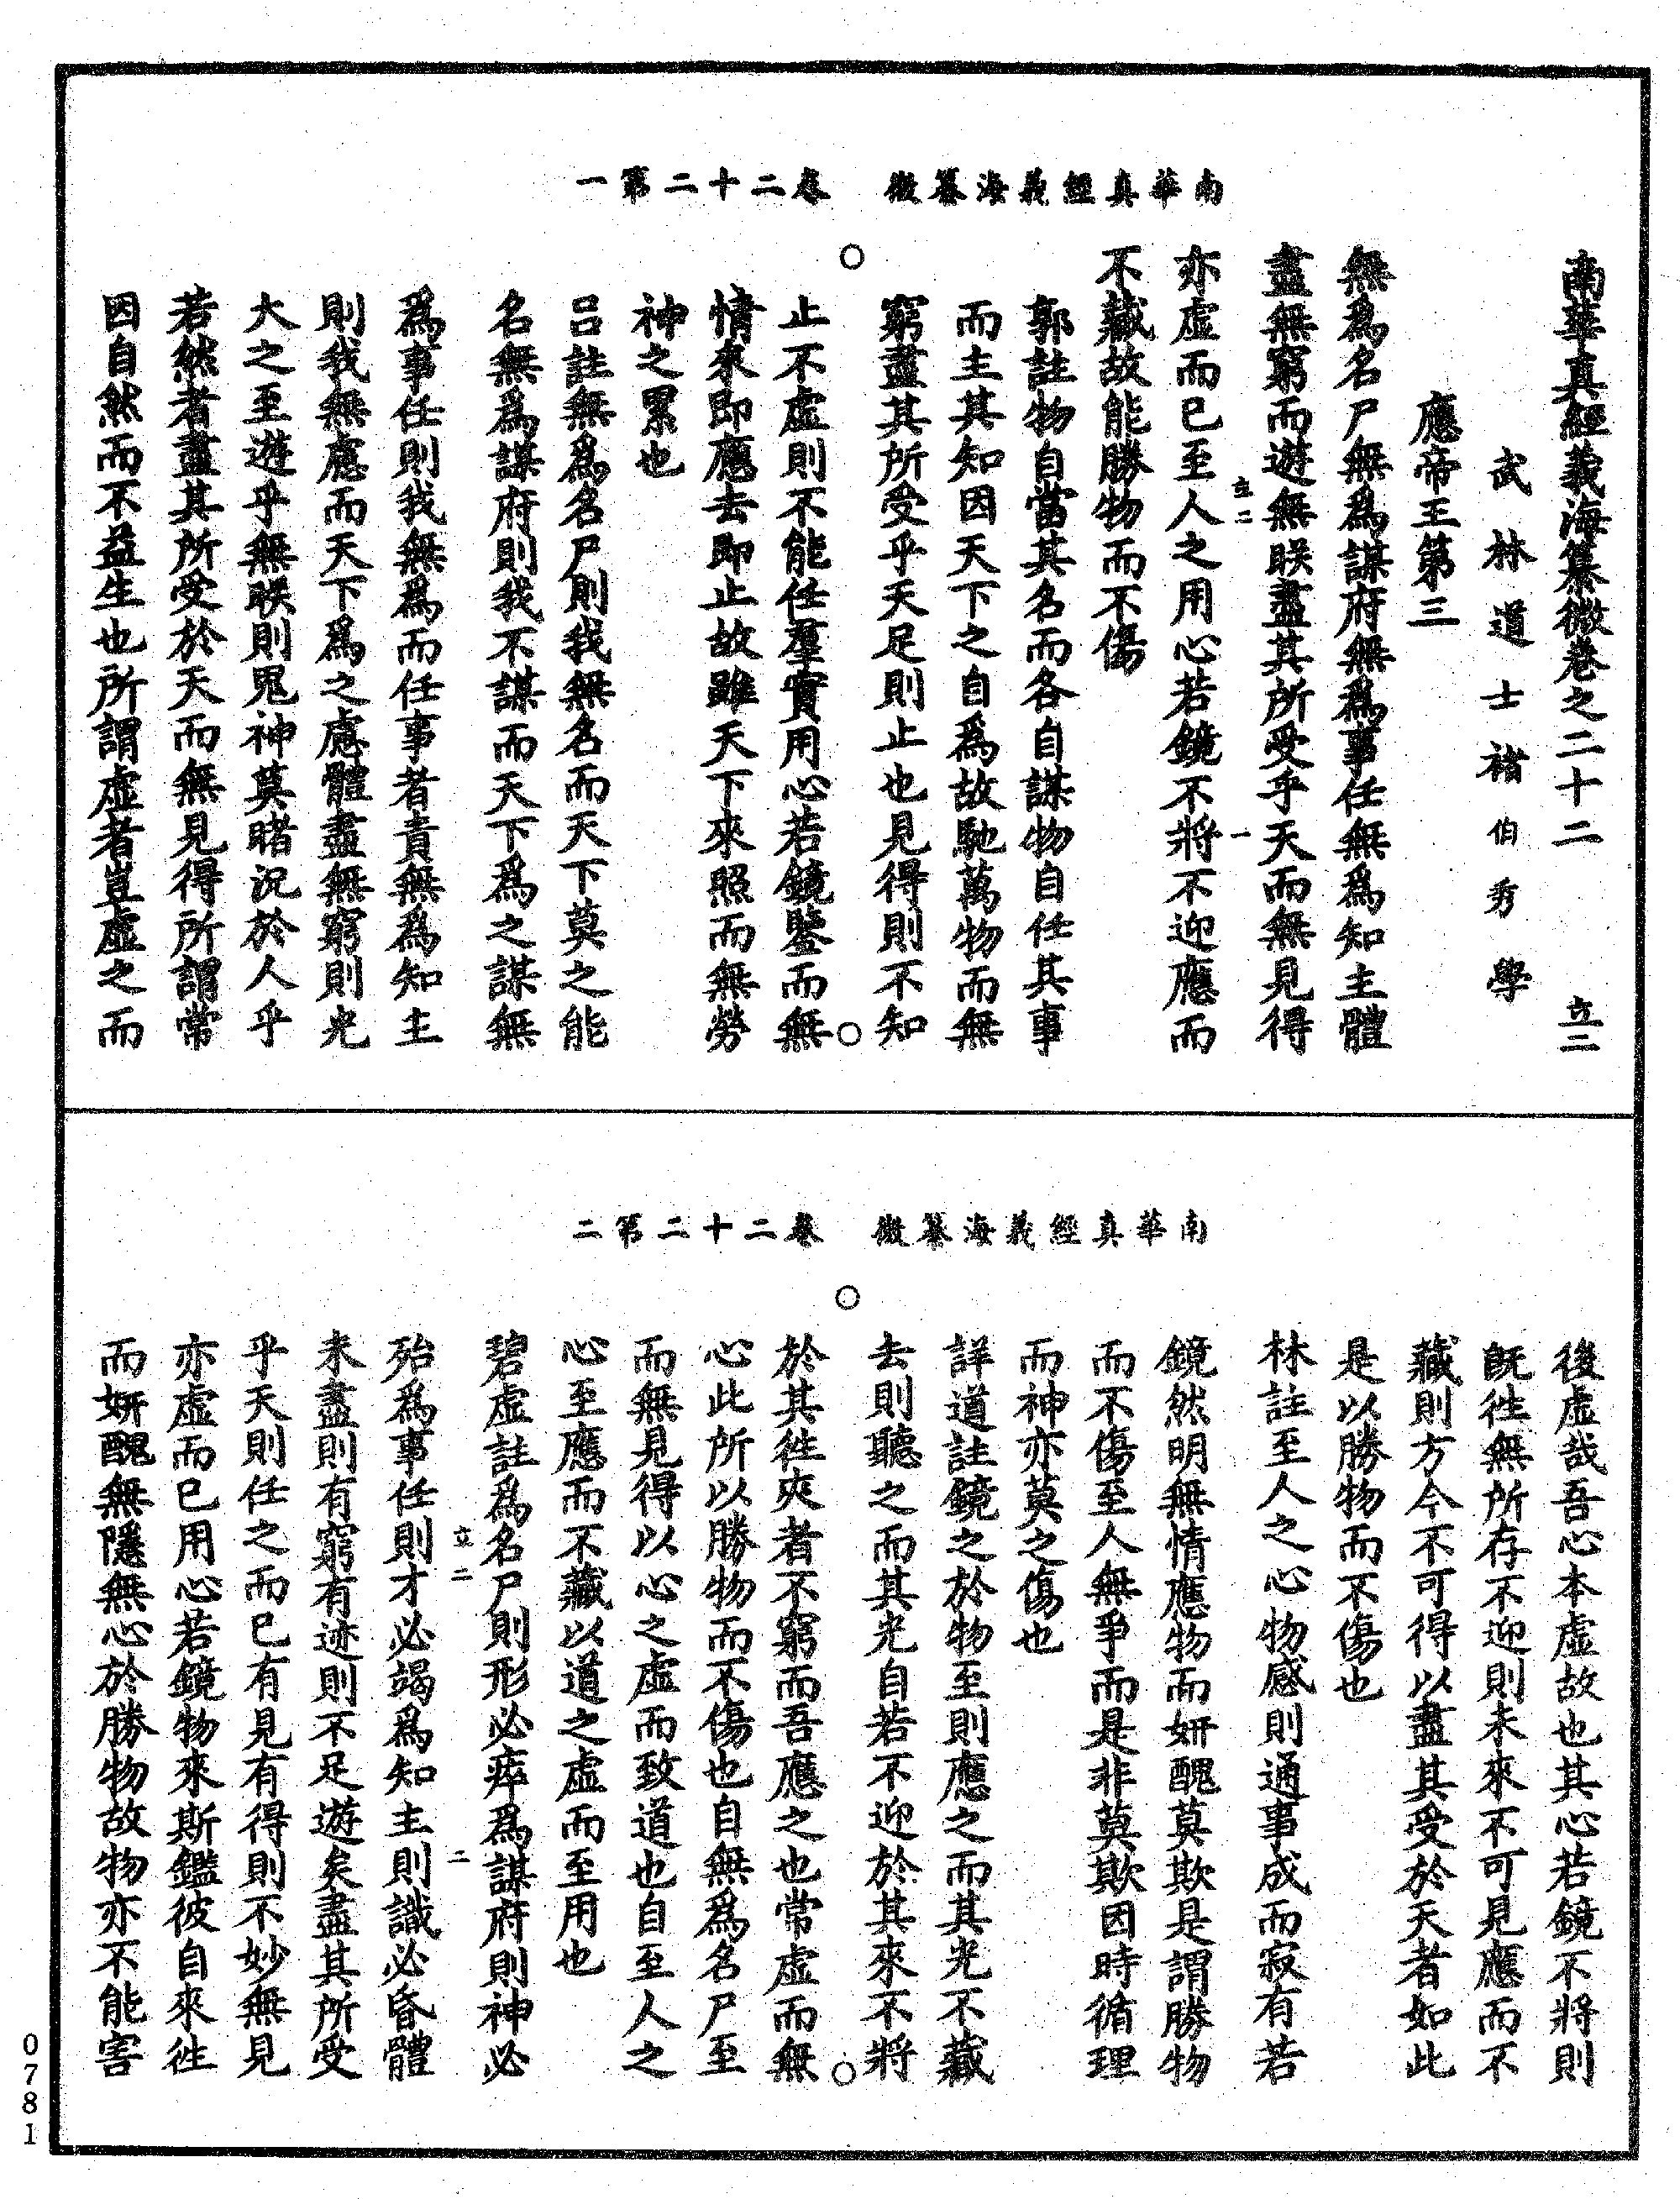 南華真經義海纂微　卷二十二第一
南華真經義海纂微卷之二十二　立二
武林道士褚伯秀學
應帝王第三
無爲名尸無爲謀府無爲事任無爲知主體
盡無窮而遊無朕盡其所受乎天而無見得
立二　一
亦虛而已至人之用心若鏡不將不迎應而
不藏故能勝物而不傷
郭註物自當其名而各自謀物自任其事
而主其知因天下之自爲故馳萬物而無
窮盡其所受乎天足則止也見得則不知
止不虛則不能任羣實用心若鏡鑒而無
情來即應去即止故雖天下來照而無勞
神之累也
呂註無爲名尸則我無名而天下莫之能
名無爲謀府則我不謀而天下爲之謀無
爲事任則我無爲而任事者責無爲知主
則我無慮而天下爲之慮體盡無窮則光
大之至遊乎無朕則鬼神莫睹況於人乎
若然者盡其所受於天而無見得所謂常
因自然而不益生也所謂虛者豈虛之而
南華真經義海纂微　卷二十二第二
後虛哉吾心本虛故也其心若鏡不將則
旣徃無所存不迎則未來不可見應而不
藏則方今不可得以盡其受於天者如此
是以勝物而不傷也
林註至人之心物感則通事成而寂有若
鏡然明無情應物而妍醜莫欺是謂勝物
而不傷至人無爭而是非莫欺因時循理
而神亦莫之傷也
詳道註鏡之於物至則應之而其光不藏
去則聽之而其光自若不迎於其來不將
於其徃來者不窮而吾應之也常虛而無
心此所以勝物而不傷也自無爲名尸至
而無見得以心之虛而致道也自至人之
心至應而不藏以道之虛而至用也
碧虛註爲名尸則形必瘁爲謀府則神必
立二　二
殆爲事任則才必竭爲知主則識必昏體
未盡則有窮有迹則不足遊矣盡其所受
乎天則任之而已有見有得則不妙無見
亦虛而已用心若鏡物來斯鑑彼自來徃
而妍醜無隱無心於勝物故物亦不能害
0781